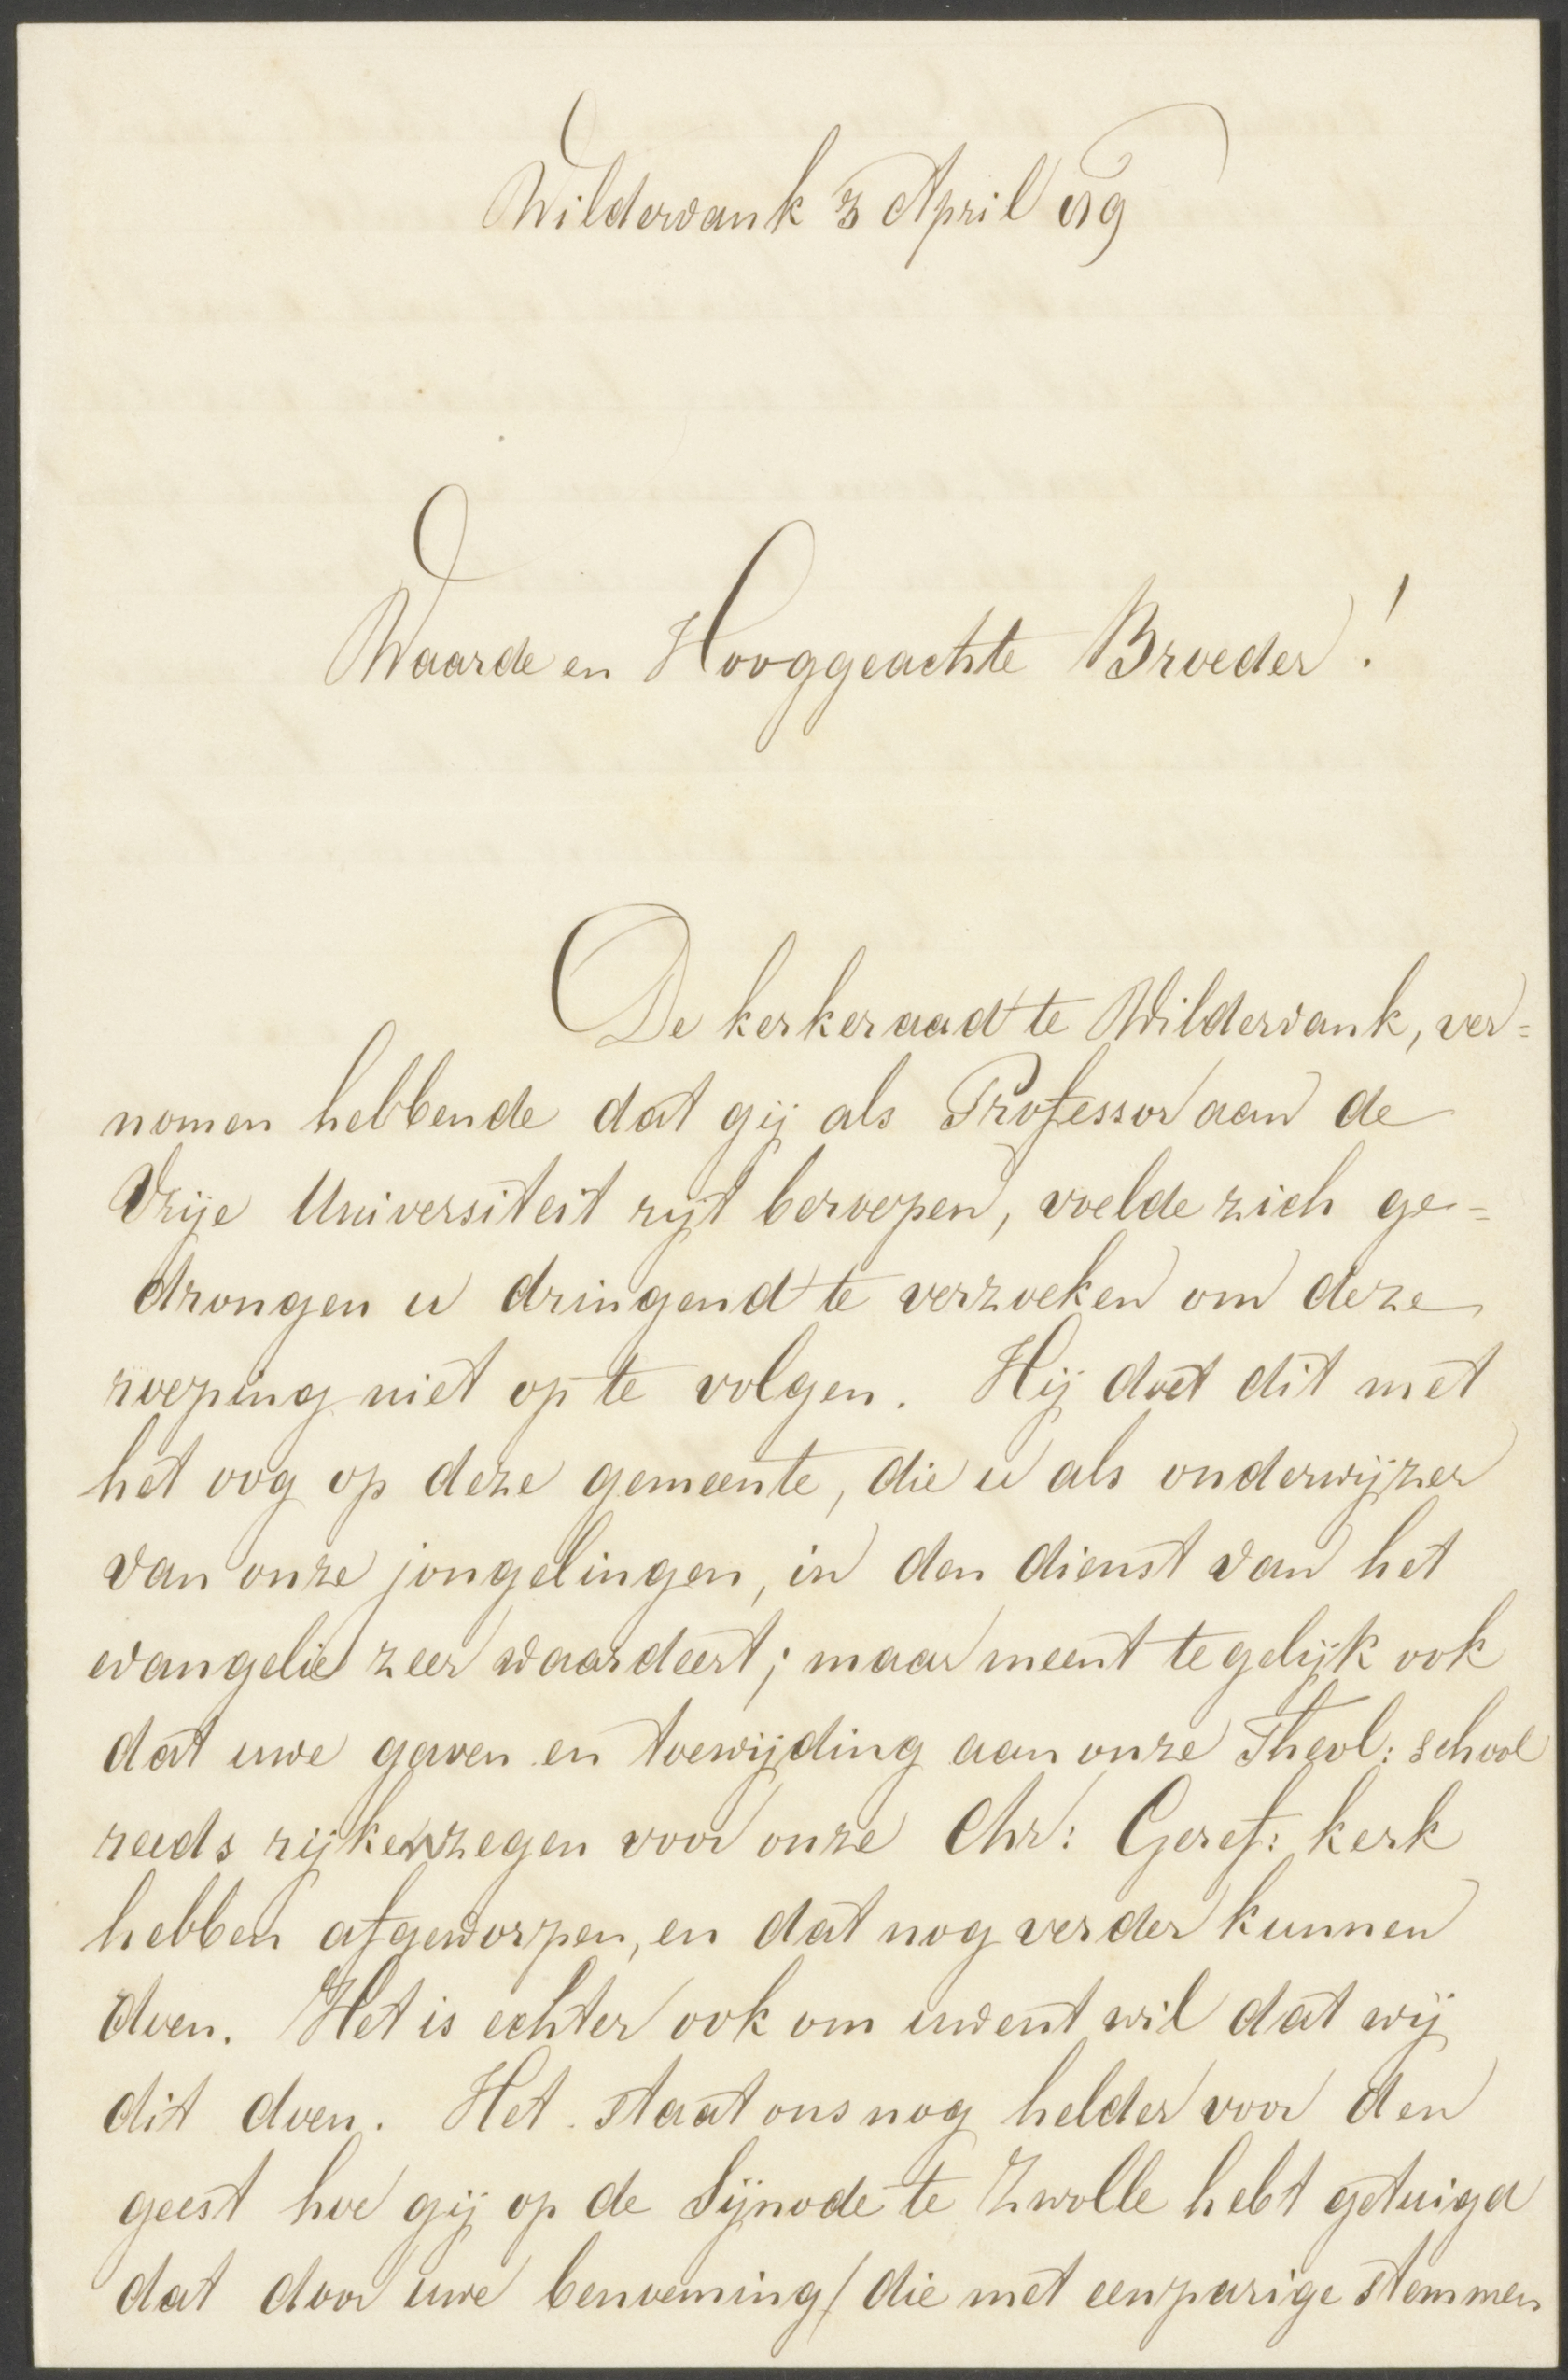 Wildervank 3 April 89
Waarde en Hooggeachte Broeder!
De kerkeraad te Wildervank, ver=
nomen hebbende dat gij als Professor aan de
Vrije Universiteit zijt beroepen, voelde zich ge=
drongen u dringend te verzoeken om deze
roeping niet op te volgen. Hij doet dit met
het oog op deze gemeente, die u als onderwijzer
van onze jongelingen, in den dienst van het
evangelie zeer waardeert; maar meent tegelijk ook
dat uwe gaven en toewijding aan onze Theol: school
reeds rijken zegen voor onze Chr: Geref: kerk
hebben afgeworpen, en dat nog verder kunnen
doen. Het is echter ook om uwent wil dat wij
dit doen. Het staat ons nog helder voor den
geest hoe gij op de Sijnode te Zwolle hebt getuigd
dat door uwe benoeming (die met eenparige stemmen